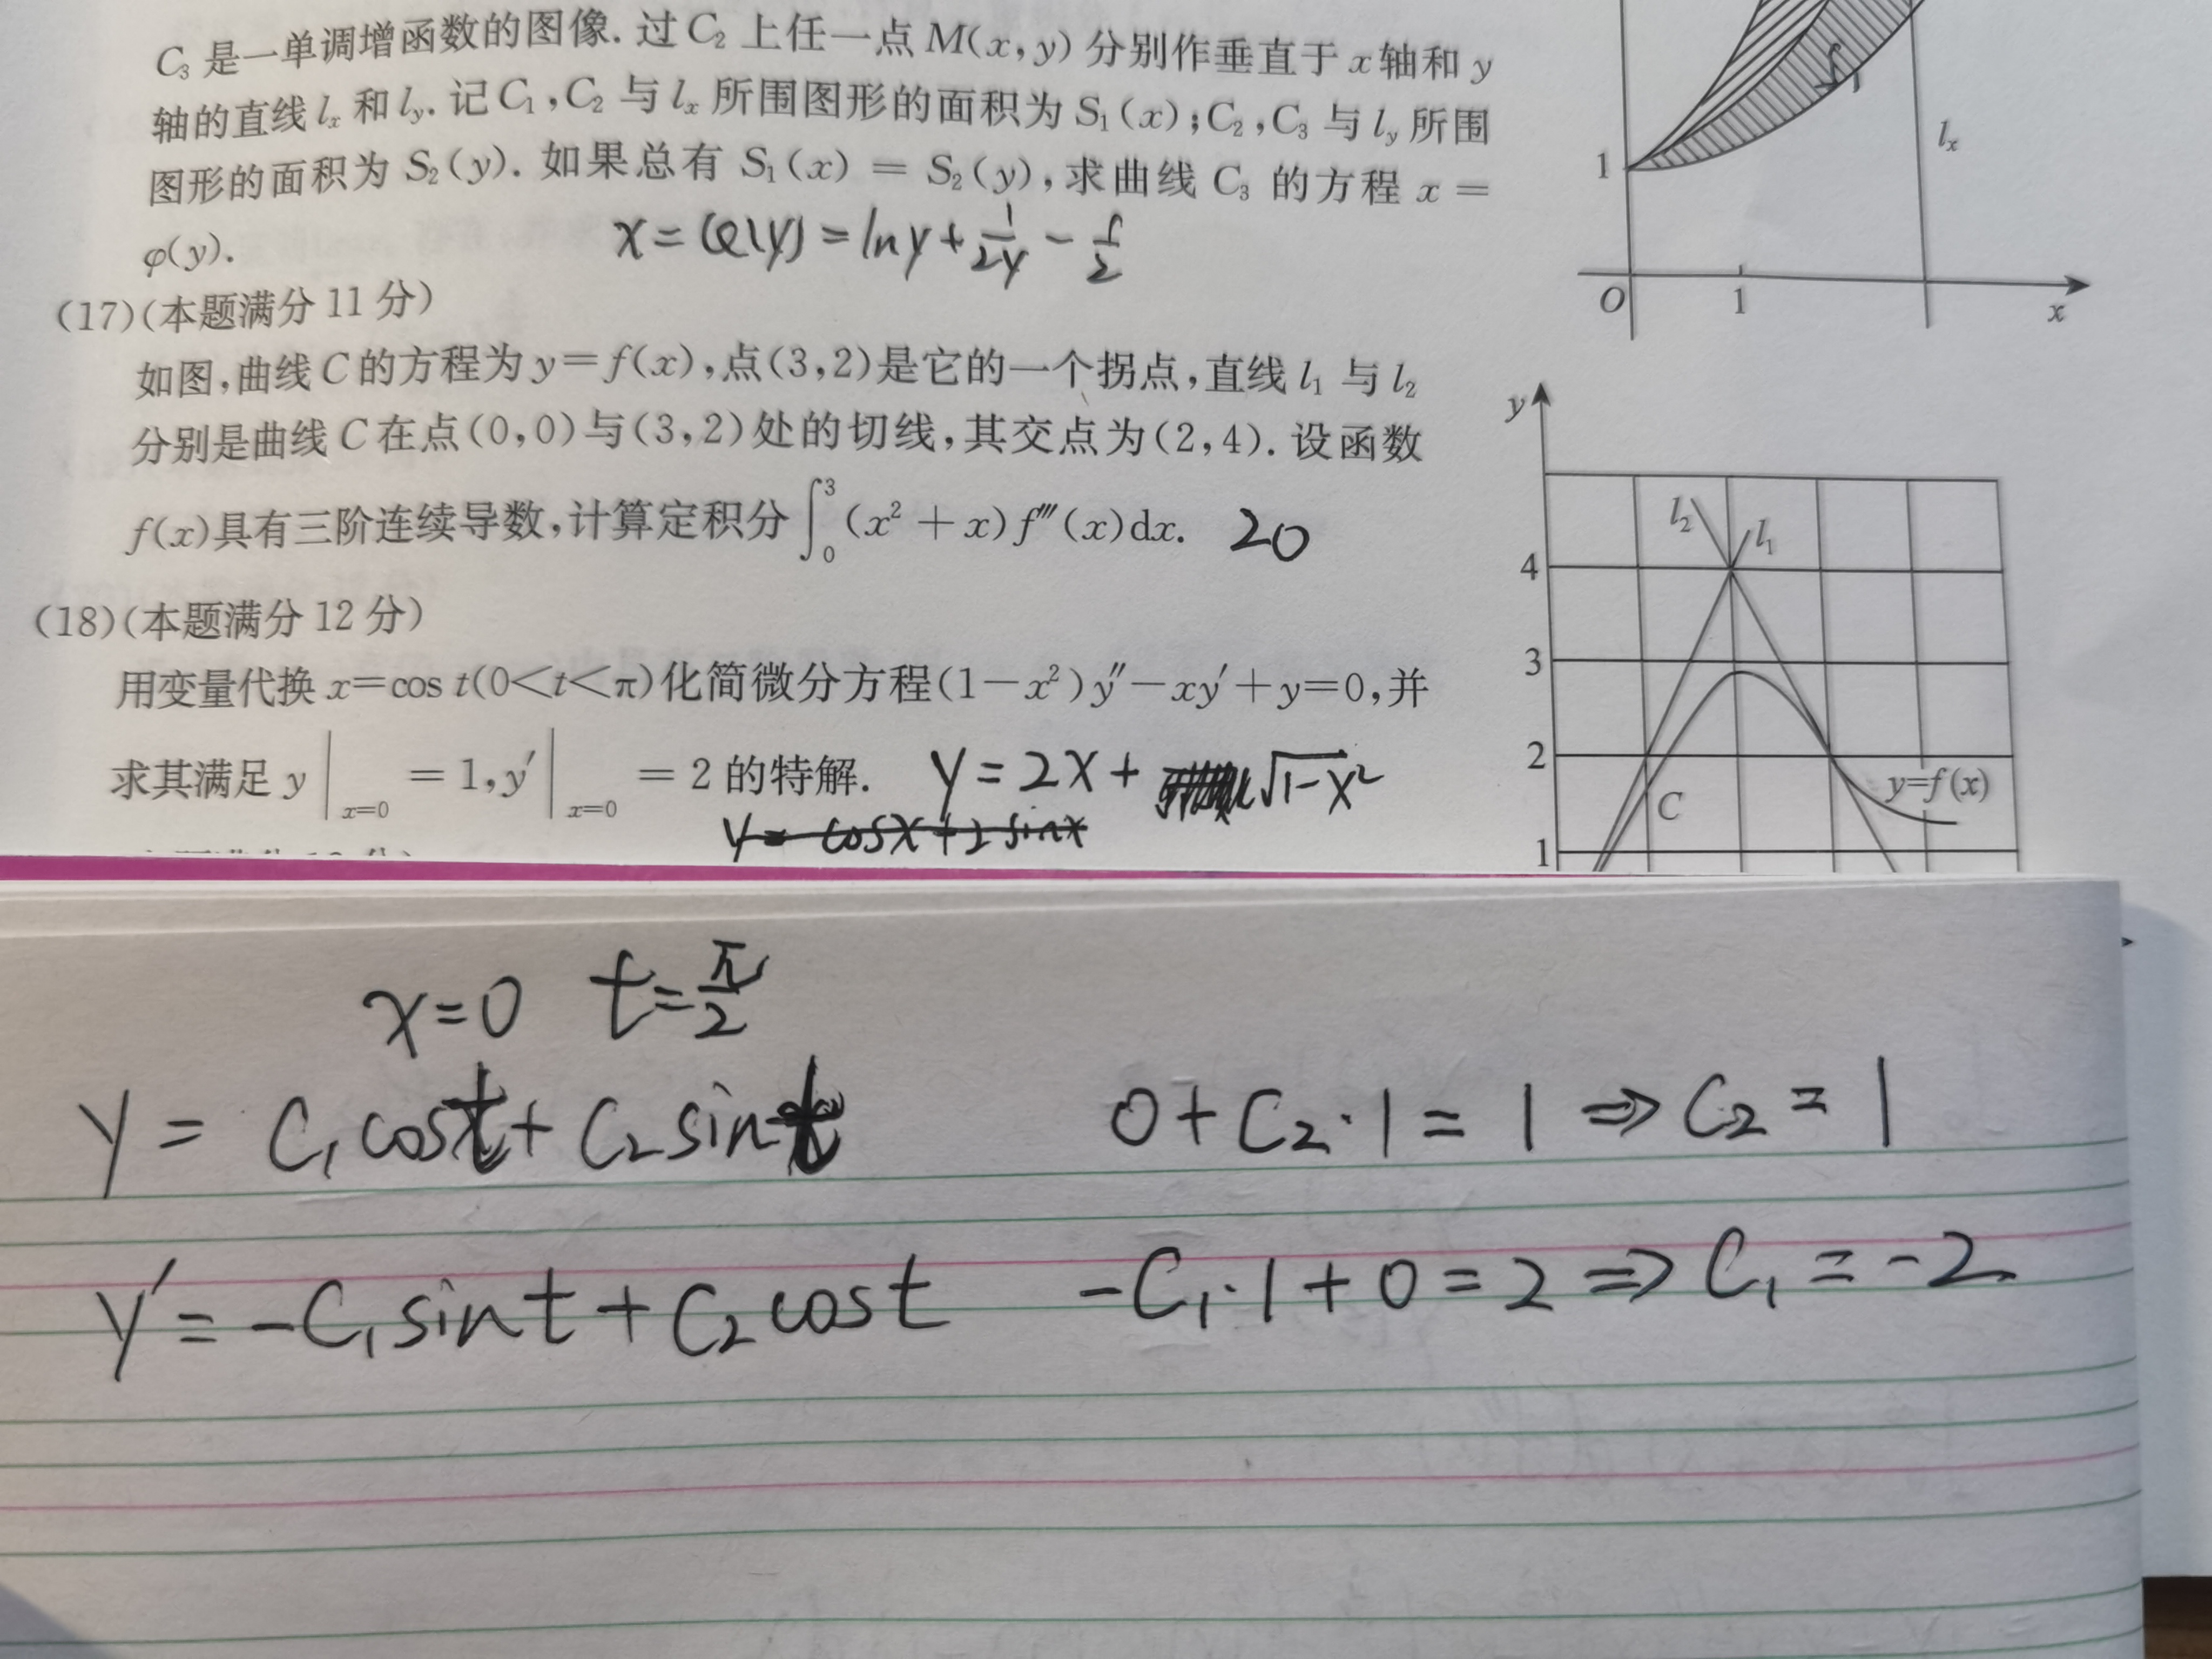 C₃ 是一单调增函数的图像. 过 C₂ 上任一点 M(x, y) 分别作垂直于 x 轴和 y
轴的直线 lₓ 和 l_y. 记 C₁, C₂ 与 lₓ 所围图形的面积为 S₁(x); C₂, C₃ 与 l_y 所围
图形的面积为 S₂(y). 如果总有 S₁(x) = S₂(y), 求曲线 C₃ 的方程 x =
φ(y).
x = φ(y) = ln y + 1/(2y) -
(17)(本题满分 11 分)
如图, 曲线 C 的方程为 y=f(x), 点(3,2)是它的一个拐点, 直线 l₁ 与 l₂
分别是曲线 C 在点(0,0)与(3,2)处的切线, 其交点为(2,4). 设函数
f(x)具有三阶连续导数, 计算定积分 ∫₀³ (x² + x) f‴(x)dx. 20
(18)(本题满分 12 分)
用变量代换 x=cos t(0<t<π)化简微分方程(1-x²)y″-xy′+y=0, 并
求其满足 y|ₓ₌₀ = 1, y′|ₓ₌₀ = 2 的特解. y = 2x + √(1-x²)
y = cosx + 2 sinx
1
lₓ
O
1
x
y
l₂
l₁
4
3
2
1
C
y=f(x)
x=0 t=π/2
y = C₁cost + C₂sint 0+C₂·1=1 ⇒ C₂=1
y′ = -C₁sint + C₂cost -C₁·1+0=2 ⇒ C₁=-2